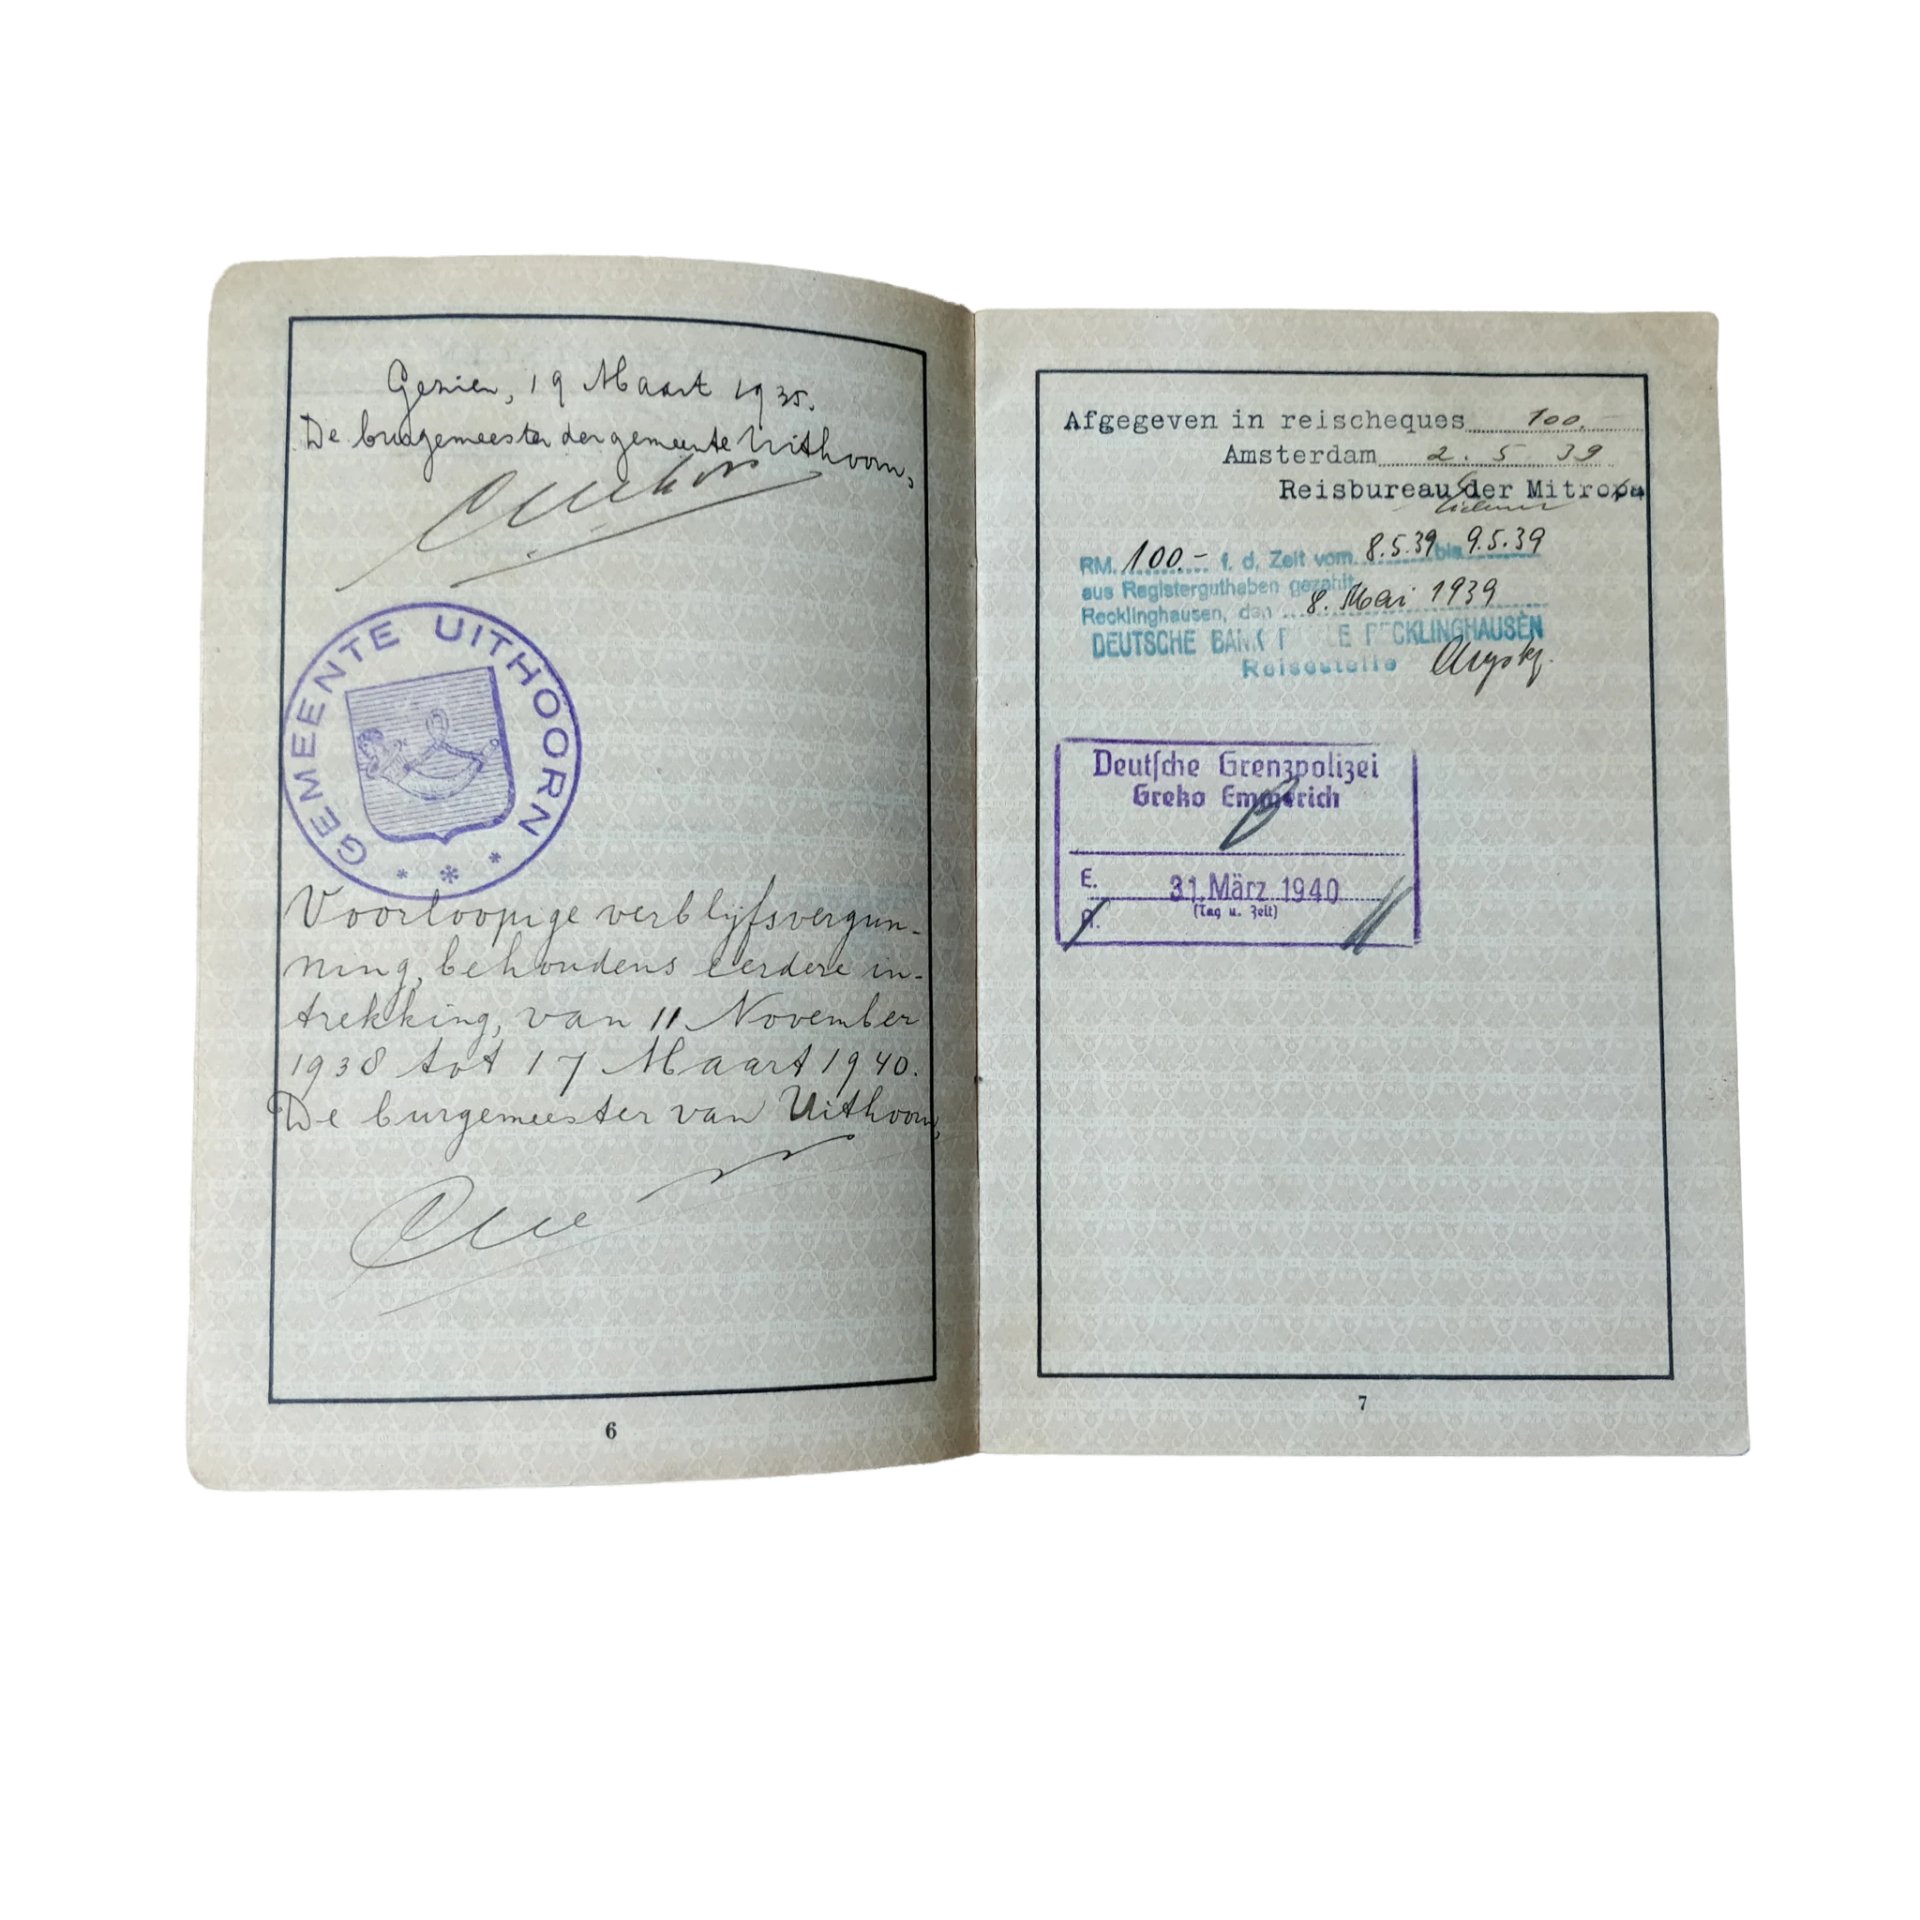 Gezien, 19 Maart 1935.
De burgemeester der gemeente Uithoorn,
GEMEENTE UITHOORN
Voorloopige verblijfsvergun-
ning, behoudens eerdere in-
trekking, van 11 November
1938 tot 17 Maart 1940.
De burgemeester van Uithoorn,
6
Afgegeven in reischeques 100.-
Amsterdam 2. 5 39
Reisbureau der Mitropa
RM. 100.- f. d. Zeit vom 8.5.39 bis 9.5.39
aus Registerguthaben gezahlt
Recklinghausen, den 8. Mai 1939
DEUTSCHE BANK RECKLINGHAUSEN
Reisestelle
Deutsche Grenzpolizei
Greko Emmerich
E. 31. März 1940
(Tag u. Zeit)
A.
7